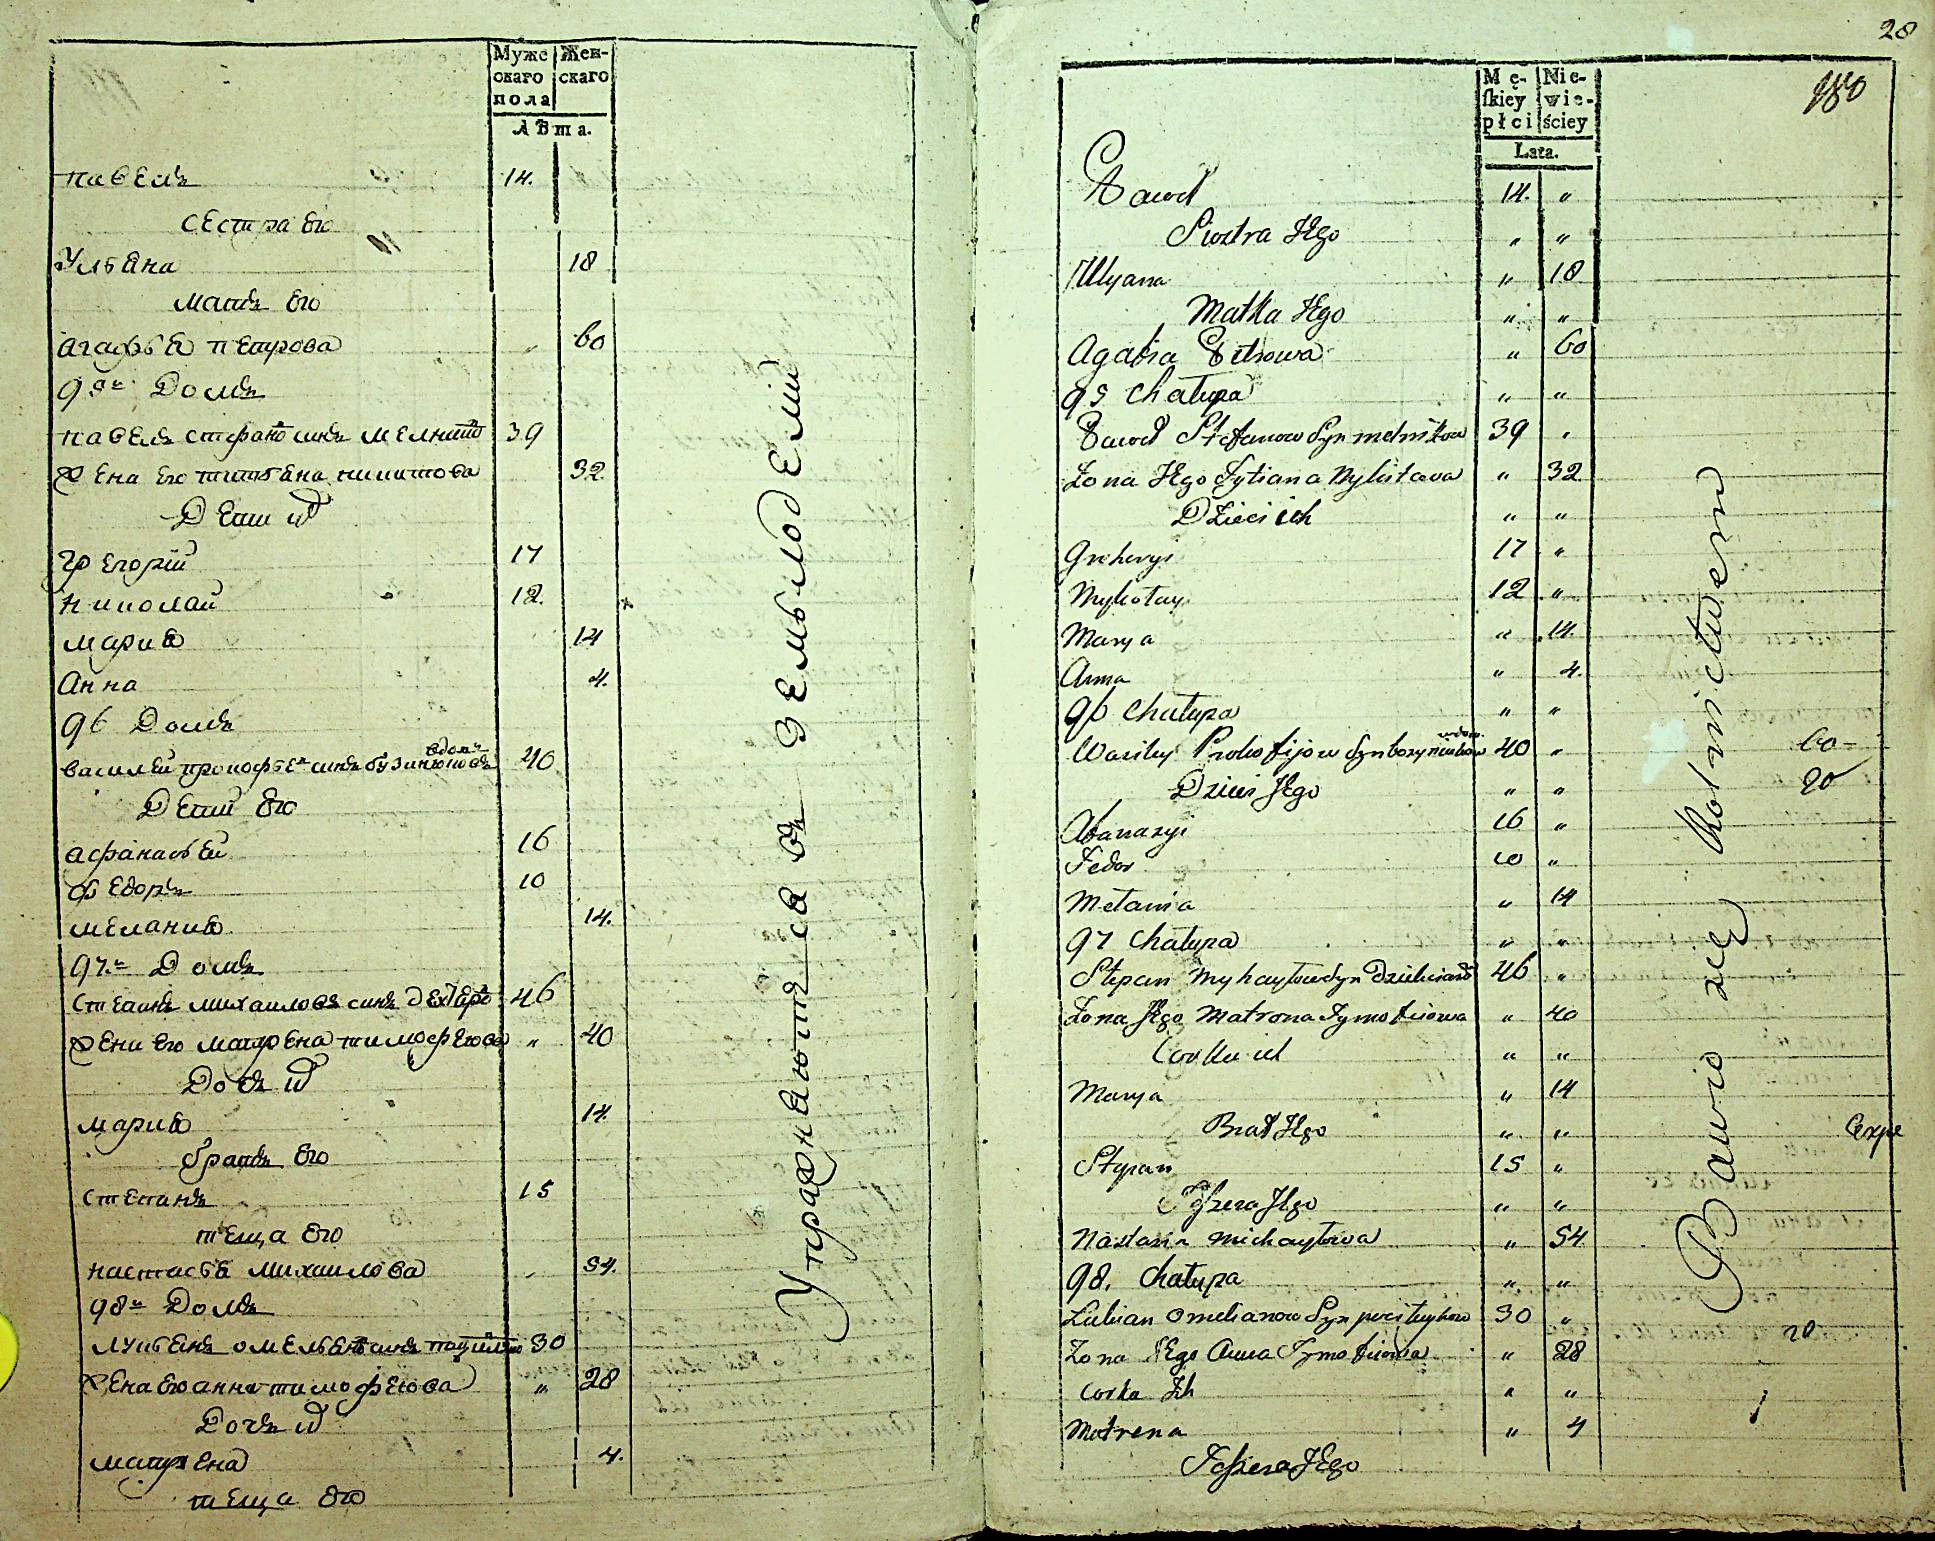 Муже
скаго
пола
Жен-
скаго
Лѣта.
Павелъ 14.
сестра его
Ульяна 18
мать его
Агафья Петрова 60
95й Домъ
Павелъ Стефановъ синъ 39
жена его Титьяна 32
Дети их
Грегорій 17
Николай 12.
Мария 14
Анна 4.
96 Домъ
вдовъ
Василей Прокофьевъ синъ 40
Дети его
Афанасьей 16
Федоръ 10
Мелания 14.
97.й Домъ
Степанъ Михаиловъ синъ 46
жена его Матрена Тимофеюва " 40
Дочь их
Мария 14.
братъ его
Степанъ 15
теща его
Настасья Михаилова 54.
98й Домъ
Лукьянъ Омельяновъ синъ 30
жена его Анна Тимофеюва " 28
Дочь их
Матрена 4.
теща его
Упражняются въ земьлоделии
28
180
Mę-
skiey
płci
Nie-
wie-
ściey
Lata.
Paweł 14. "
Siostra Jego " "
Ulyana " 18
Matka Jego " "
Agafia Petrowa " 60
95 Chałupa " "
Paweł Stefanow Syn 39 "
Żona Jego Tytiana " 32
Dzieci ich " "
Grehoryi 17 "
Mykołay 12 "
Marya " 14.
Anna " 4.
96 Chałupa " "
wdow.
Wasiley Prokofijow Syn 40 "
Dzieci Jego " "
Afanazyi 16 "
Fedor 10 "
Mełania " 14
97 Chałupa " "
Stepan Myhayłow Syn 46 "
Żona Jego Matrona Tymofiiowa " 40
Corka ich " "
Marya " 14
Brat Jego " "
Stepan 15 "
Teszcza Jego " "
Nastasia Michayłowa " 54
98. Chałupa " "
Lukian Omelianow Syn 30 "
Żona Jego Anna Tymofiiowa " 28
Corka Ich " "
Matrena " 4
Teszcza Jego
Bawio się Rolnictwem
60-
20
20